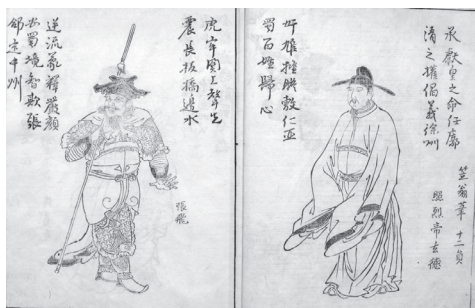 承獻皇之命任廓
清之權倡義徐州
奸雄挫膽敷仁西
蜀百姓歸心
笠翁筆 十二頁
照烈帝玄德
虎牢関上聲先
震長板橋邊水
逆流義釋嚴顏
安蜀境智欺張
郃定中州
張飛